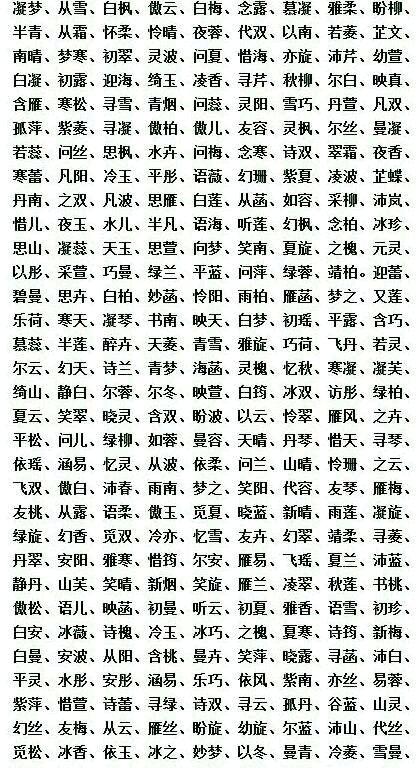 凝梦、从雪、白枫、傲云、白梅、念露、慕凝、雅柔、盼柳、
半青、从霜、怀柔、怜晴、夜蓉、代双、以南、若菱、芷文、
南晴、梦寒、初翠、灵波、问夏、惜海、亦旋、沛芹、幼萱、
白凝、初露、迎海、绮玉、凌香、寻芹、秋柳、尔白、映真、
含雁、寒松、寻雪、青烟、问蕊、灵阳、雪巧、丹萱、凡双、
孤萍、紫菱、寻凝、傲柏、傲儿、友容、灵枫、尔丝、曼凝、
若蕊、问丝、思枫、水卉、问梅、念寒、诗双、翠霜、夜香、
寒蕾、凡阳、冷玉、平彤、语薇、幻珊、紫夏、凌波、芷蝶、
丹南、之双、凡波、思雁、白莲、从菡、如容、采柳、沛岚、
惜儿、夜玉、水儿、半凡、语海、听莲、幻枫、念柏、冰珍、
思山、凝蕊、天玉、思萱、向梦、笑南、夏旋、之槐、元灵、
以彤、采萱、巧曼、绿兰、平蓝、问萍、绿蓉、靖柏。迎蕾、
碧曼、思卉、白柏、妙菡、怜阳、雨柏、雁菡、梦之、又莲、
乐荷、寒天、凝琴、书南、映天、白梦、初瑶、平露、含巧、
慕蕊、半莲、醉卉、天菱、青雪、雅旋、巧荷、飞丹、若灵、
尔云、幻天、诗兰、青梦、海菡、灵槐、忆秋、寒凝、凝芙、
绮山、静白、尔蓉、尔冬、映萱、白筠、冰双、访彤、绿柏、
夏云、笑翠、晓灵、含双、盼波、以云、怜翠、雁风、之卉、
平松、问儿、绿柳、如蓉、曼容、天晴、丹琴、惜天、寻琴、
依瑶、涵易、忆灵、从波、依柔、问兰、山晴、怜珊、之云、
飞双、傲白、沛春、雨南、梦之、笑阳、代容、友琴、雁梅、
友桃、从露、语柔、傲玉、觅夏、晓蓝、新晴、雨莲、凝旋、
绿旋、幻香、觅双、冷亦、忆雪、友卉、幻翠、靖柔、寻菱、
丹翠、安阳、雅寒、惜筠、尔安、雁易、飞瑶、夏兰、沛蓝、
静丹、山芙、笑晴、新烟、笑旋、雁兰、凌翠、秋莲、书桃、
傲松、语儿、映菡、初曼、听云、初夏、雅香、语雪、初珍、
白安、冰薇、诗槐、冷玉、冰巧、之槐、夏寒、诗筠、新梅、
白曼、安波、从阳、含桃、曼卉、笑萍、晓露、寻菡、沛白、
平灵、水彤、安彤、涵易、乐巧、依风、紫南、亦丝、易蓉、
紫萍、惜萱、诗蕾、寻绿、诗双、寻云、孤丹、谷蓝、山灵、
幻丝、友梅、从云、雁丝、盼旋、幼旋、尔蓝、沛山、代丝、
觅松、冰香、依玉、冰之、妙梦、以冬、曼青、冷菱、雪曼、